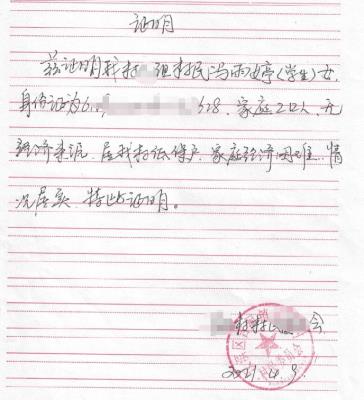 证明
兹证明我村 组村民冯雨婷(学生)女,
身份证为6 528.家庭2口人,无
经济来源,属我村低保户.家庭经济困难.情
况属实.特此证明。
村村民 会
2021.4.9.